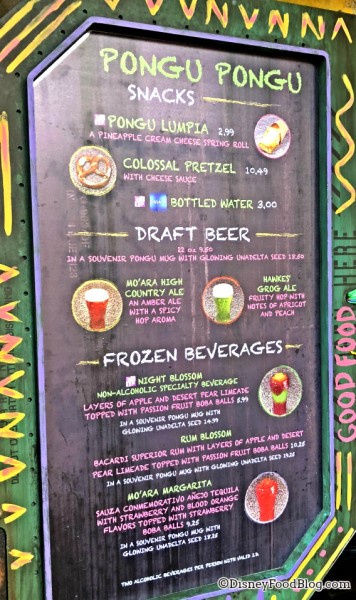 PONGU PONGU
SNACKS
PONGU LUMPIA 2.99
A PINEAPPLE CREAM CHEESE SPRING ROLL
COLOSSAL PRETZEL 10.49
WITH CHEESE SAUCE
BOTTLED WATER 3.00
DRAFT BEER
22 oz 9.50
IN A SOUVENIR PONGU MUG WITH GLOWING UNADELTA SEED 18.50
MO'ARA HIGH
COUNTRY ALE
AN AMBER ALE
WITH A SPICY
HOP AROMA
HAWKES'
GROG ALE
FRUITY HOP WITH
NOTES OF APRICOT
AND PEACH
FROZEN BEVERAGES
NIGHT BLOSSOM
NON-ALCOHOLIC SPECIALTY BEVERAGE
LAYERS OF APPLE AND DESERT PEAR LIMEADE
TOPPED WITH PASSION FRUIT BOBA BALLS 5.99
IN A SOUVENIR PONGU MUG WITH
GLOWING UNADELTA SEED 14.99
RUM BLOSSOM
BACARDI SUPERIOR RUM WITH LAYERS OF APPLE AND DESERT
PEAR LIMEADE TOPPED WITH PASSION FRUIT BOBA BALLS 10.25
IN A SOUVENIR PONGU MUG WITH GLOWING UNADELTA SEED 19.25
MO'ARA MARGARITA
SAUZA CONMEMORATIVO AÑEJO TEQUILA
WITH STRAWBERRY AND BLOOD ORANGE
FLAVORS TOPPED WITH STRAWBERRY
BOBA BALLS 9.25
IN A SOUVENIR PONGU MUG WITH
GLOWING UNADELTA SEED 18.25
TWO ALCOHOLIC BEVERAGES PER PERSON WITH VALID I.D.
GOOD FOOD
HERE
©DisneyFoodBlog.com